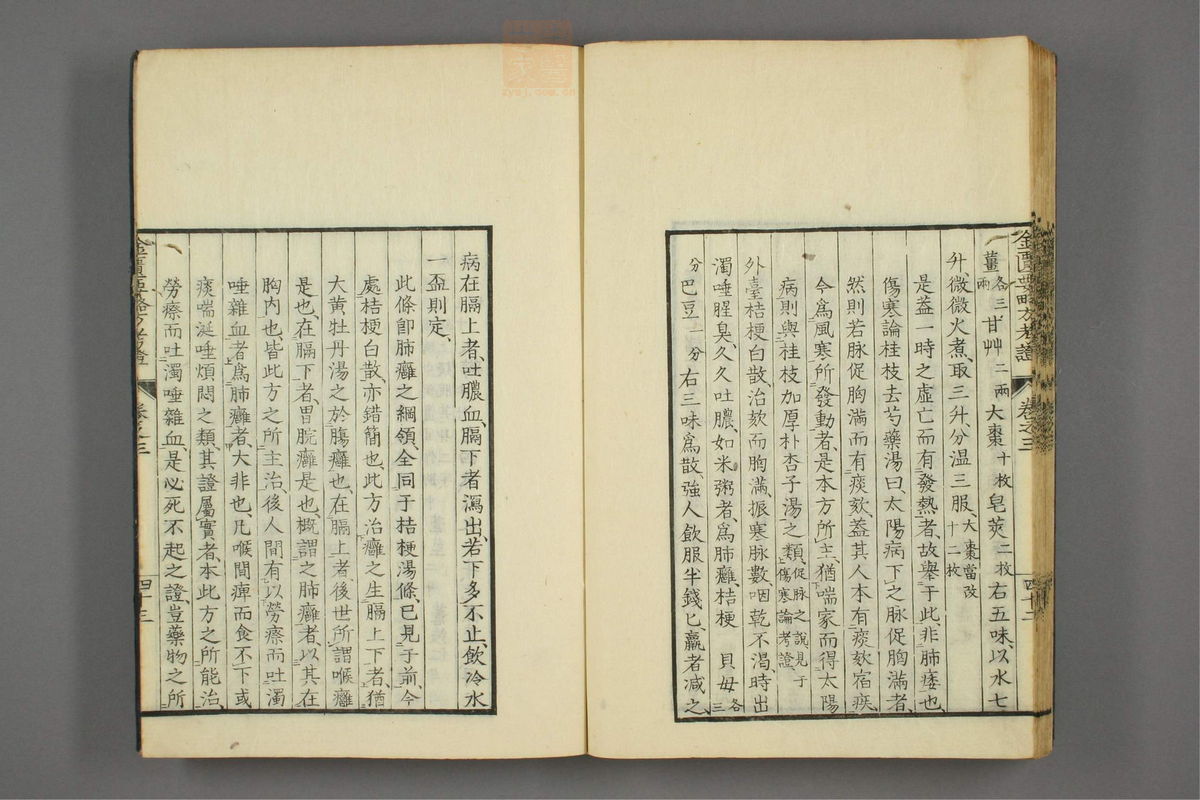 金匱要略方考證 卷之三 四十二
薑各三兩甘艸二兩大棗十枚皂莢二枚右五味、以水七
升、微微火煮、取三升、分温三服、大棗當改十二枚
是蓋一時之虛亡而有發熱者、故舉于此、非肺痿也
傷寒論桂枝去芍藥湯曰、太陽病下之脉促胸滿者、
然則若脉促胸滿而有痰欬、蓋其人本有痰欬宿疾、
今爲風寒所發動者、是本方所主、猶喘家而得太陽
病則與桂枝加厚朴杏子湯之類、促脉之說、見于傷寒論考證、
外臺桔梗白散、治欬而胸滿、振寒脉數、咽乾不渴、時出
濁唾腥臭、久久吐膿、如米粥者、爲肺癰、桔梗 貝毋各三
分巴豆一分右三味爲散、強人飲服半錢匕、羸者減之、
病在膈上者、吐膿血、膈下者瀉出、若下多不止、飲冷水
一盃則定、
此條卽肺癰之綱領、全同于桔梗湯條、已見于前、今
處桔梗白散、亦錯簡也、此方治癰之生膈上下者、猶
大黄牡丹湯之於腸癰也、在膈上者、後世所謂喉癰
是也、在膈下者、胃脘癰是也、概謂之肺癰者、以其在
胸内也、皆此方之所主治、後人間有以勞瘵而吐濁
唾雜血者爲肺癰者、大非也、凡喉間痺而食不下、或
痰喘涎唾煩悶之類、其證屬實者、本此方之所能治、
勞瘵而吐濁唾雜血、是必死不起之證、豈藥物之所
金匱要略方考證 卷之三 四十三